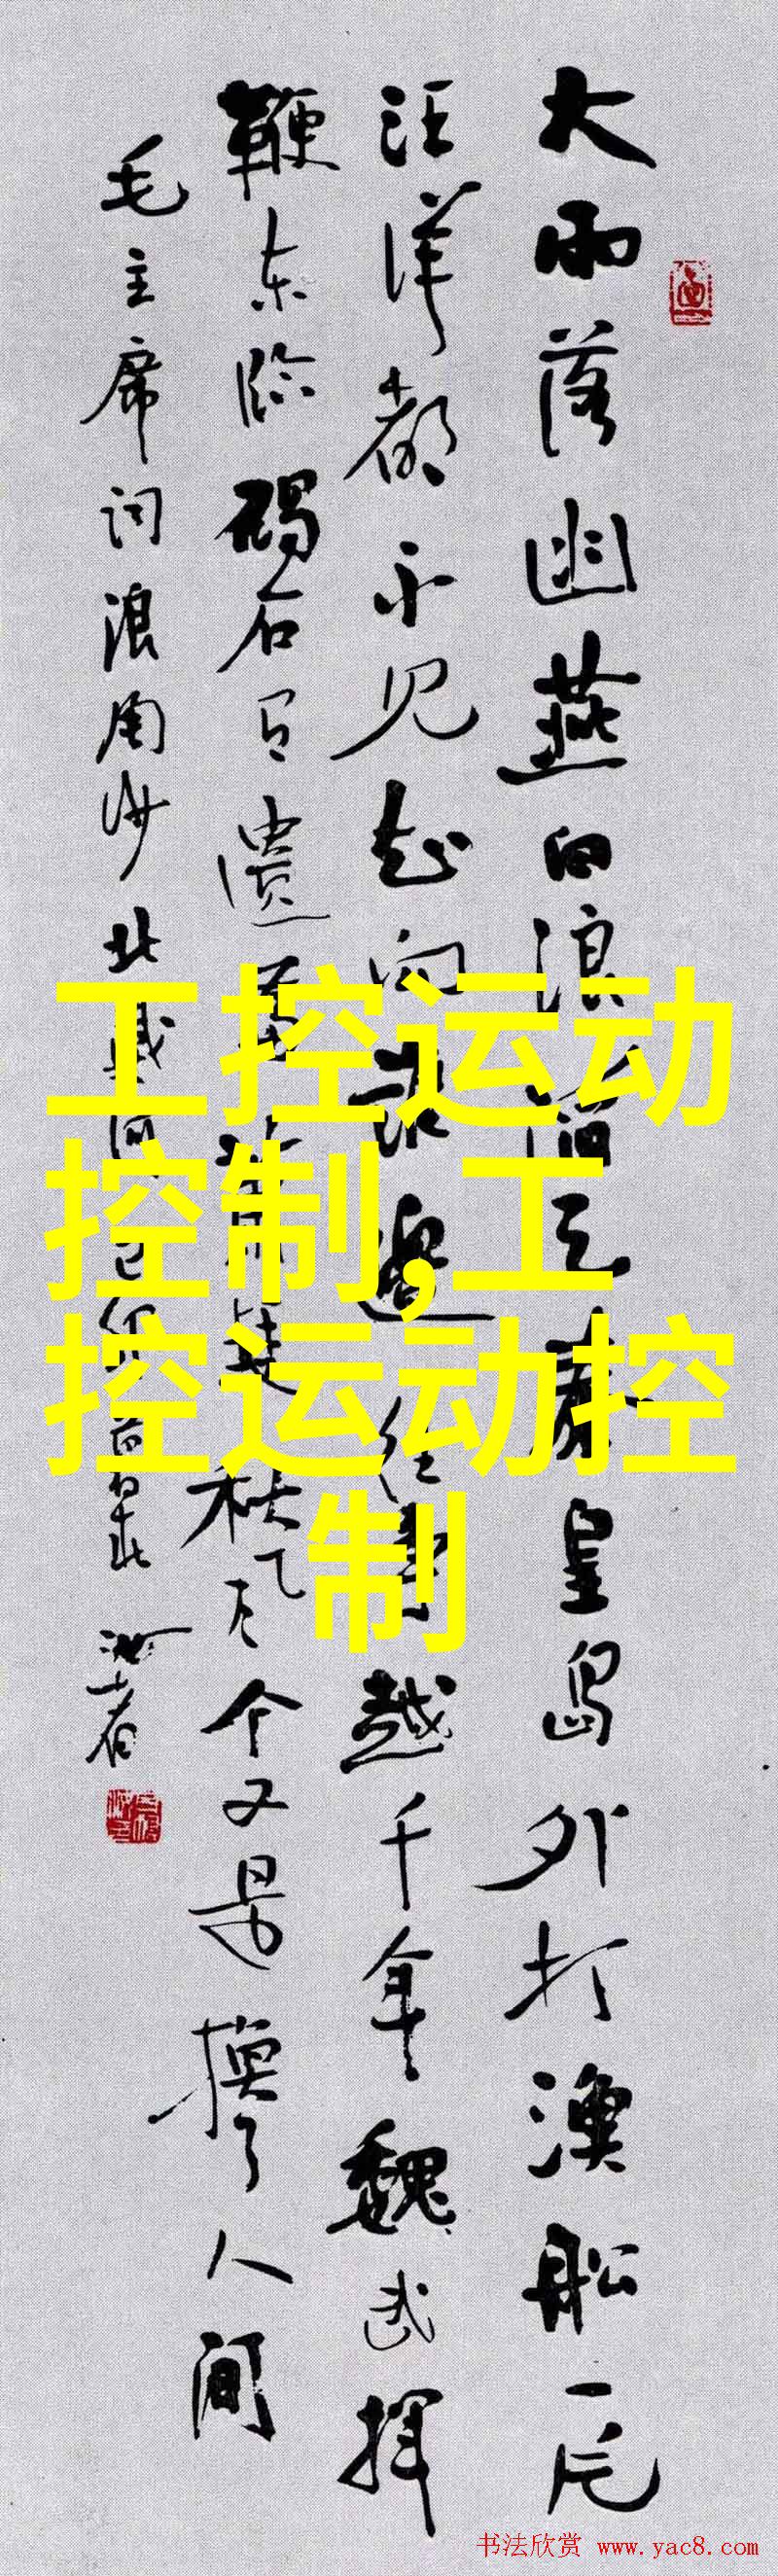 大雨落幽燕白浪滔天秦皇島外打漁船一片
汪洋都不見知向誰邊往事越千年魏武揮
鞭東臨碣石有遺篇蕭瑟秋風今又是換了人間
毛主席詞浪淘沙北戴河
工控运动
控制,工
控运动控
制
书法欣赏 www.yac8.com